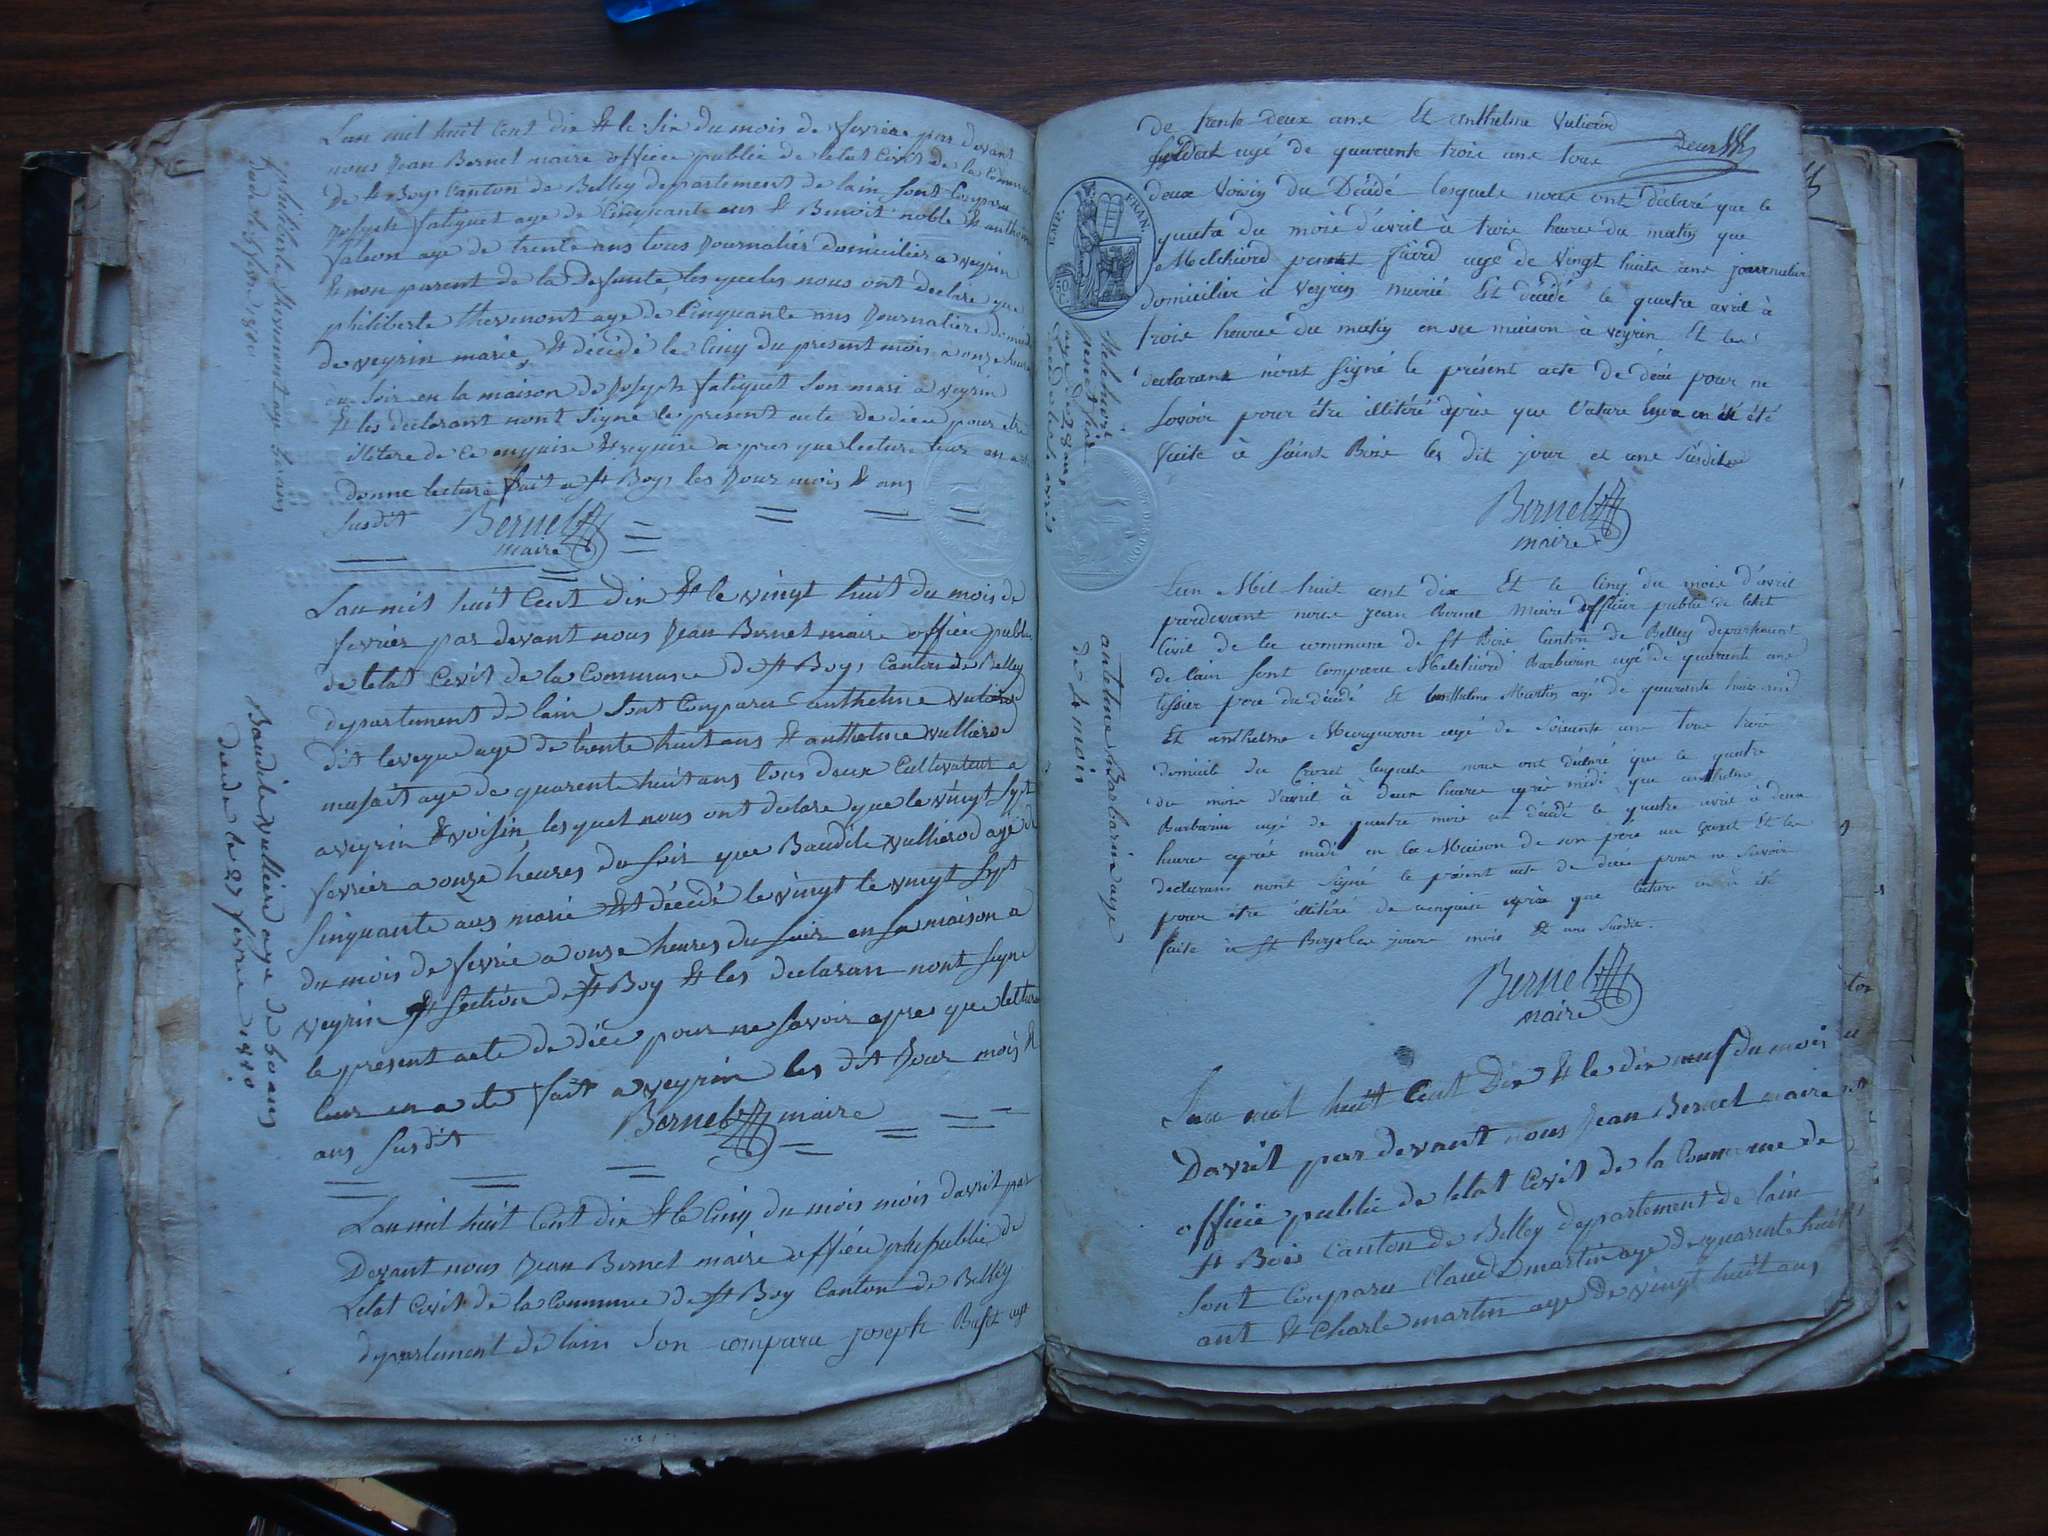 Lan mil huit Cent dix & le six du mois de fevrier par devant
nous Jean Bernet maire officie public de letat Civil de la Commune
de St Boys Canton de Belley departement de lain sont Comparu
Joseph fatiquet age de Cinquante ans & Benoit noble & anthoine
faleon age de trente ans tous Journalier domicilier a veyrin
& non parent de la defunte, les queles nous ont declare que
philiberte thevenont age de Cinquante ans Journaliere
de veyrin marie, & décidé le Cinq du present mois a onze heure
du soir en la maison de Joseph fatiquet son mari a veyrin
& les declarant nont signé le present acte de décé pour etre
illitere de ce enquise & requise a pres que lecture leur en a
donne lecture fait a St Boys les Jour mois & ans
susdit Bernet
maire
philiberte thevenont age 50 ans
Lan mil huit Cent dix & le vingt huit du mois de
fevrier par devant nous Jean Bernet maire officie public
de letat Civil de la Commune de St Boys Canton de Belley
departement de lain, sont Comparu anthelme vulierod
dit leveque age de trente huit ans & anthelme vullierod
musait age de quarente huit ans tous deux Cultivateur a
a veyrin & voisin lesquel nous ont declare que le vingt sept
fevrier a onze heures du soir que Baudile vullierod age de
sinquante ans marie Est décidé le vingt le vingt sept
du mois de fevrié a onze heures du soir en sa maison a
veyrin & section de St Boy & les declaran nont signe
le present acte de déce pour ne savoir apres que lecture
leur en a ete fait a veyrin les dit Jour mois &
ans susdit Bernet maire
Baudile vullierod age de 50 ans
décidé le 27 fevrie 1810
Lan mil huit Cent dix & le Cinq du mois mois davril par
Devant nous Jean Bernet maire officie public de
Letat Civil de la Commune de St Boy Canton de Belley
departement de lain son comparu joseph Buset agé
de trente deux ans Et anthelme Vulierod
soldat agé de quarante trois ans tous
deux Voisin du Décédé lesquels nous ont déclaré que le
quatre du mois d'avril à trois heures du matin que
Melchiord penet age de Vingt huite ans journalier
domicilier à Veyrin marié Est décidé le quatre avril à
trois heures du matin en sa maison à veyrin Et les
declarant n'ont signé le présent acte de décé pour ne
savoir pour être illitéré après que été
faite à Saint Bois les dit jour et ans susdit
Bernet
maire
EMP. FRAN.
50 C.
Melchior
age de 28 ans
Lan Mil huit cent dix Et le Cinq du mois d'avril
pardevant nous Jean Bernet Maire officier public de l'etat
Civil de la commune de St Bois Canton de Belley departement
de l'ain sont Comparu Melchiord Barbarin agé de quarante ans
tissier pere du décédé Et anthelme Martin agé de quarante huit ans
Et anthelme agé de soisante ans tous trois
domicilié du Crozet lesquels nous ont déclaré que le quatre
du mois d'avril à deux heures apres midi que anthelme
Barbarin agé de quatre mois est décidé le quatre avril à deux
heures après midi en la Maison de son pere au Crozet Et les
declarans nont signé le présent acte de décés pour ne savoir
pour être illitéré de ce enquise après que lecture en à été
faite à St Boys les jours mois & ans susdit.
Bernet
maire
antelme Barbarin age
de 4 mois
Lan mil huit Cent Dix & le dix neuf du mois
Davril par devant nous Jean Bernet maire
officie public de letat Civil de la Commune de
St Bois Canton de Belley departement de lain
sont Comparu Claude martin age de quarente huit
ant & Charle martin age de vingt huit ans